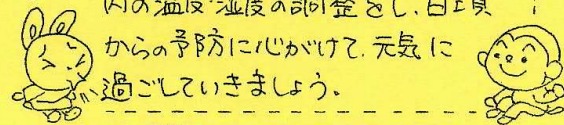 内の温度・湿度の調整をし、日頃
からの予防に心がけて、元気に
過ごしていきましょう。